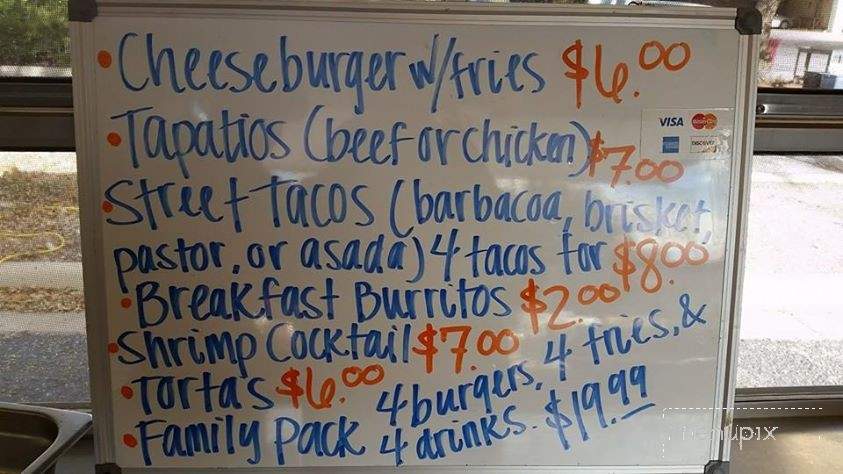 • Cheeseburger w/fries $6.00
• Tapatios (beef or chicken) $7.00
VISA MasterCard
DISCOVER
• Street Tacos (barbacoa, brisket,
pastor, or asada) 4 tacos for $8.00
• Breakfast Burritos $2.00
• Shrimp Cocktail $7.00
• Tortas $6.00
• Family Pack 4 burgers, 4 fries, &
4 drinks. $19.99
menupix